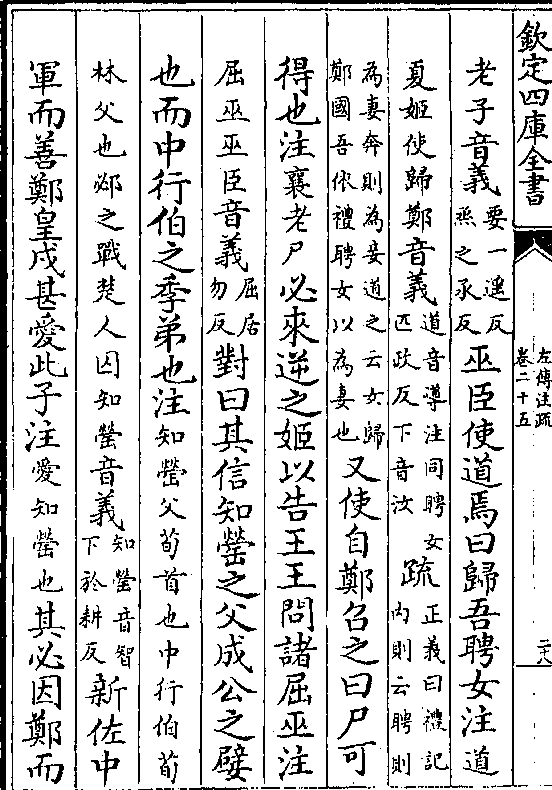 欽定四庫全書
左傳注疏
卷二十五
二十八
老子音義要一遥反烝之承反巫臣使道焉曰歸吾聘女注道
夏姬使歸鄭音義道音導注同聘女匹政反下音汝疏正義曰禮記内則云聘則
為妻奔則為妾道之云女歸鄭國吾依禮聘女以為妻也又使自鄭召之曰尸可
得也注襄老尸必來逆之姬以告王王問諸屈巫注
屈巫巫臣音義屈居勿反對曰其信知罃之父成公之嬖
也而中行伯之季弟也注知罃父荀首也中行伯荀
林父也邲之戰楚人囚知罃音義知罃音智下於耕反新佐中
軍而善鄭皇戌甚愛此子注愛知罃也其必因鄭而